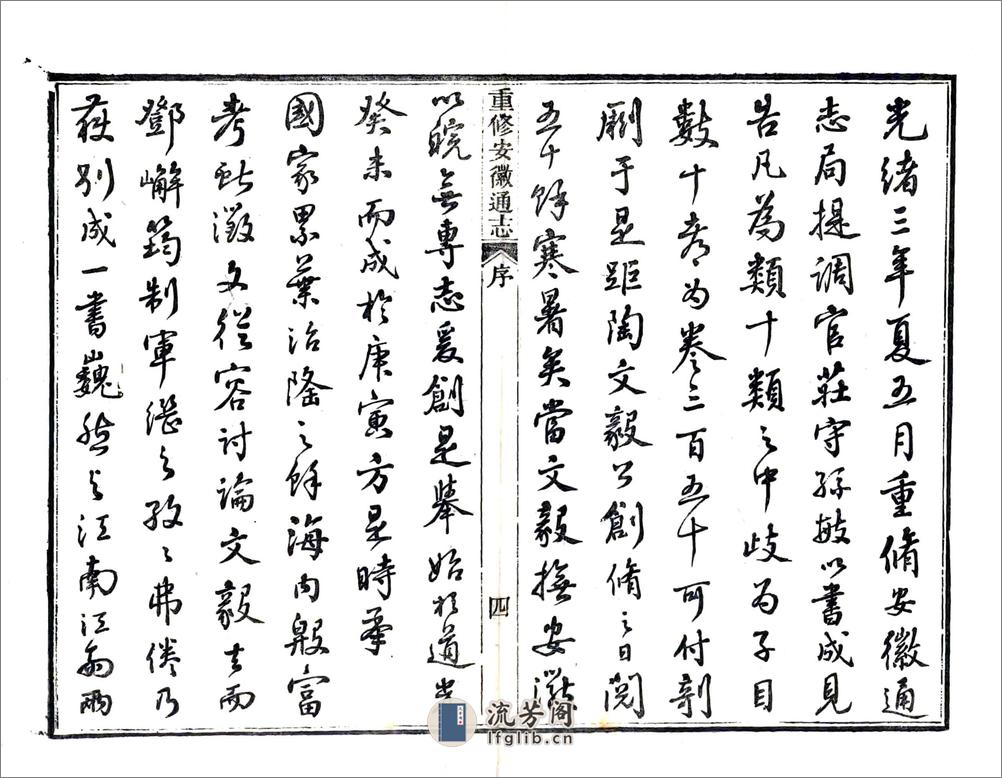 光緒三年夏五月重脩安徽通
志局提調官莊守孫敏以書成見
告凡為類十類之中歧為子目
數十者為卷三百五十可付剞
劂于是距陶文毅公創脩之日閱
五十餘寒暑矣當文毅撫安徽
重修安徽通志
序
四
以皖無專志爰創是舉始於道光
癸未而成於庚寅方是時承
國家累葉治隆之餘海內殷富
考獻徵文從容討論文毅去而
鄧嶰筠制軍繼之孜〻弗倦乃
蕆別成一書巍然與江南江西兩
流芳阁
lfglib.cn